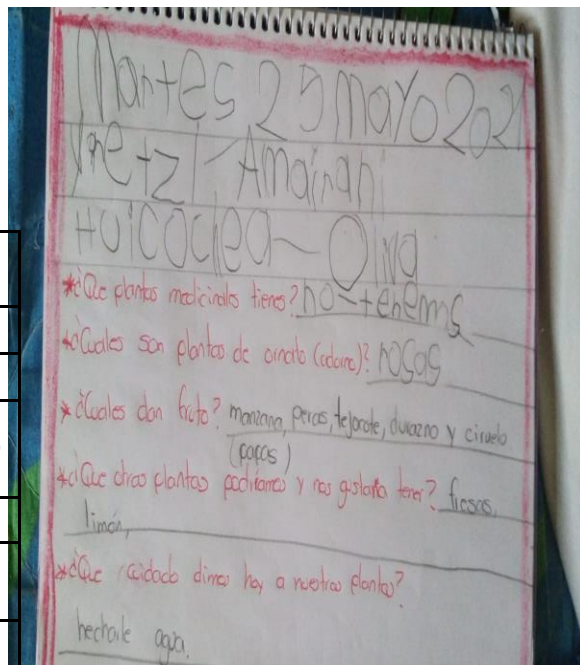 Martes 25 mayo 2021
Yaretzi Amairani
Huicochea Oliva
*¿Que plantas medicinales tienes? no-tenems
*¿Cuales son plantas de ornato (adorno)? rosas
*¿Cuales dan fruto? manzana, peras, tejocote, durazno y ciruelo
(pocos)
*¿Que otras plantas podriamos y nos gustaria tener? fresas,
limón,
*¿Que cuidado dimos hoy a nuestras plantas?
hecharle agua.